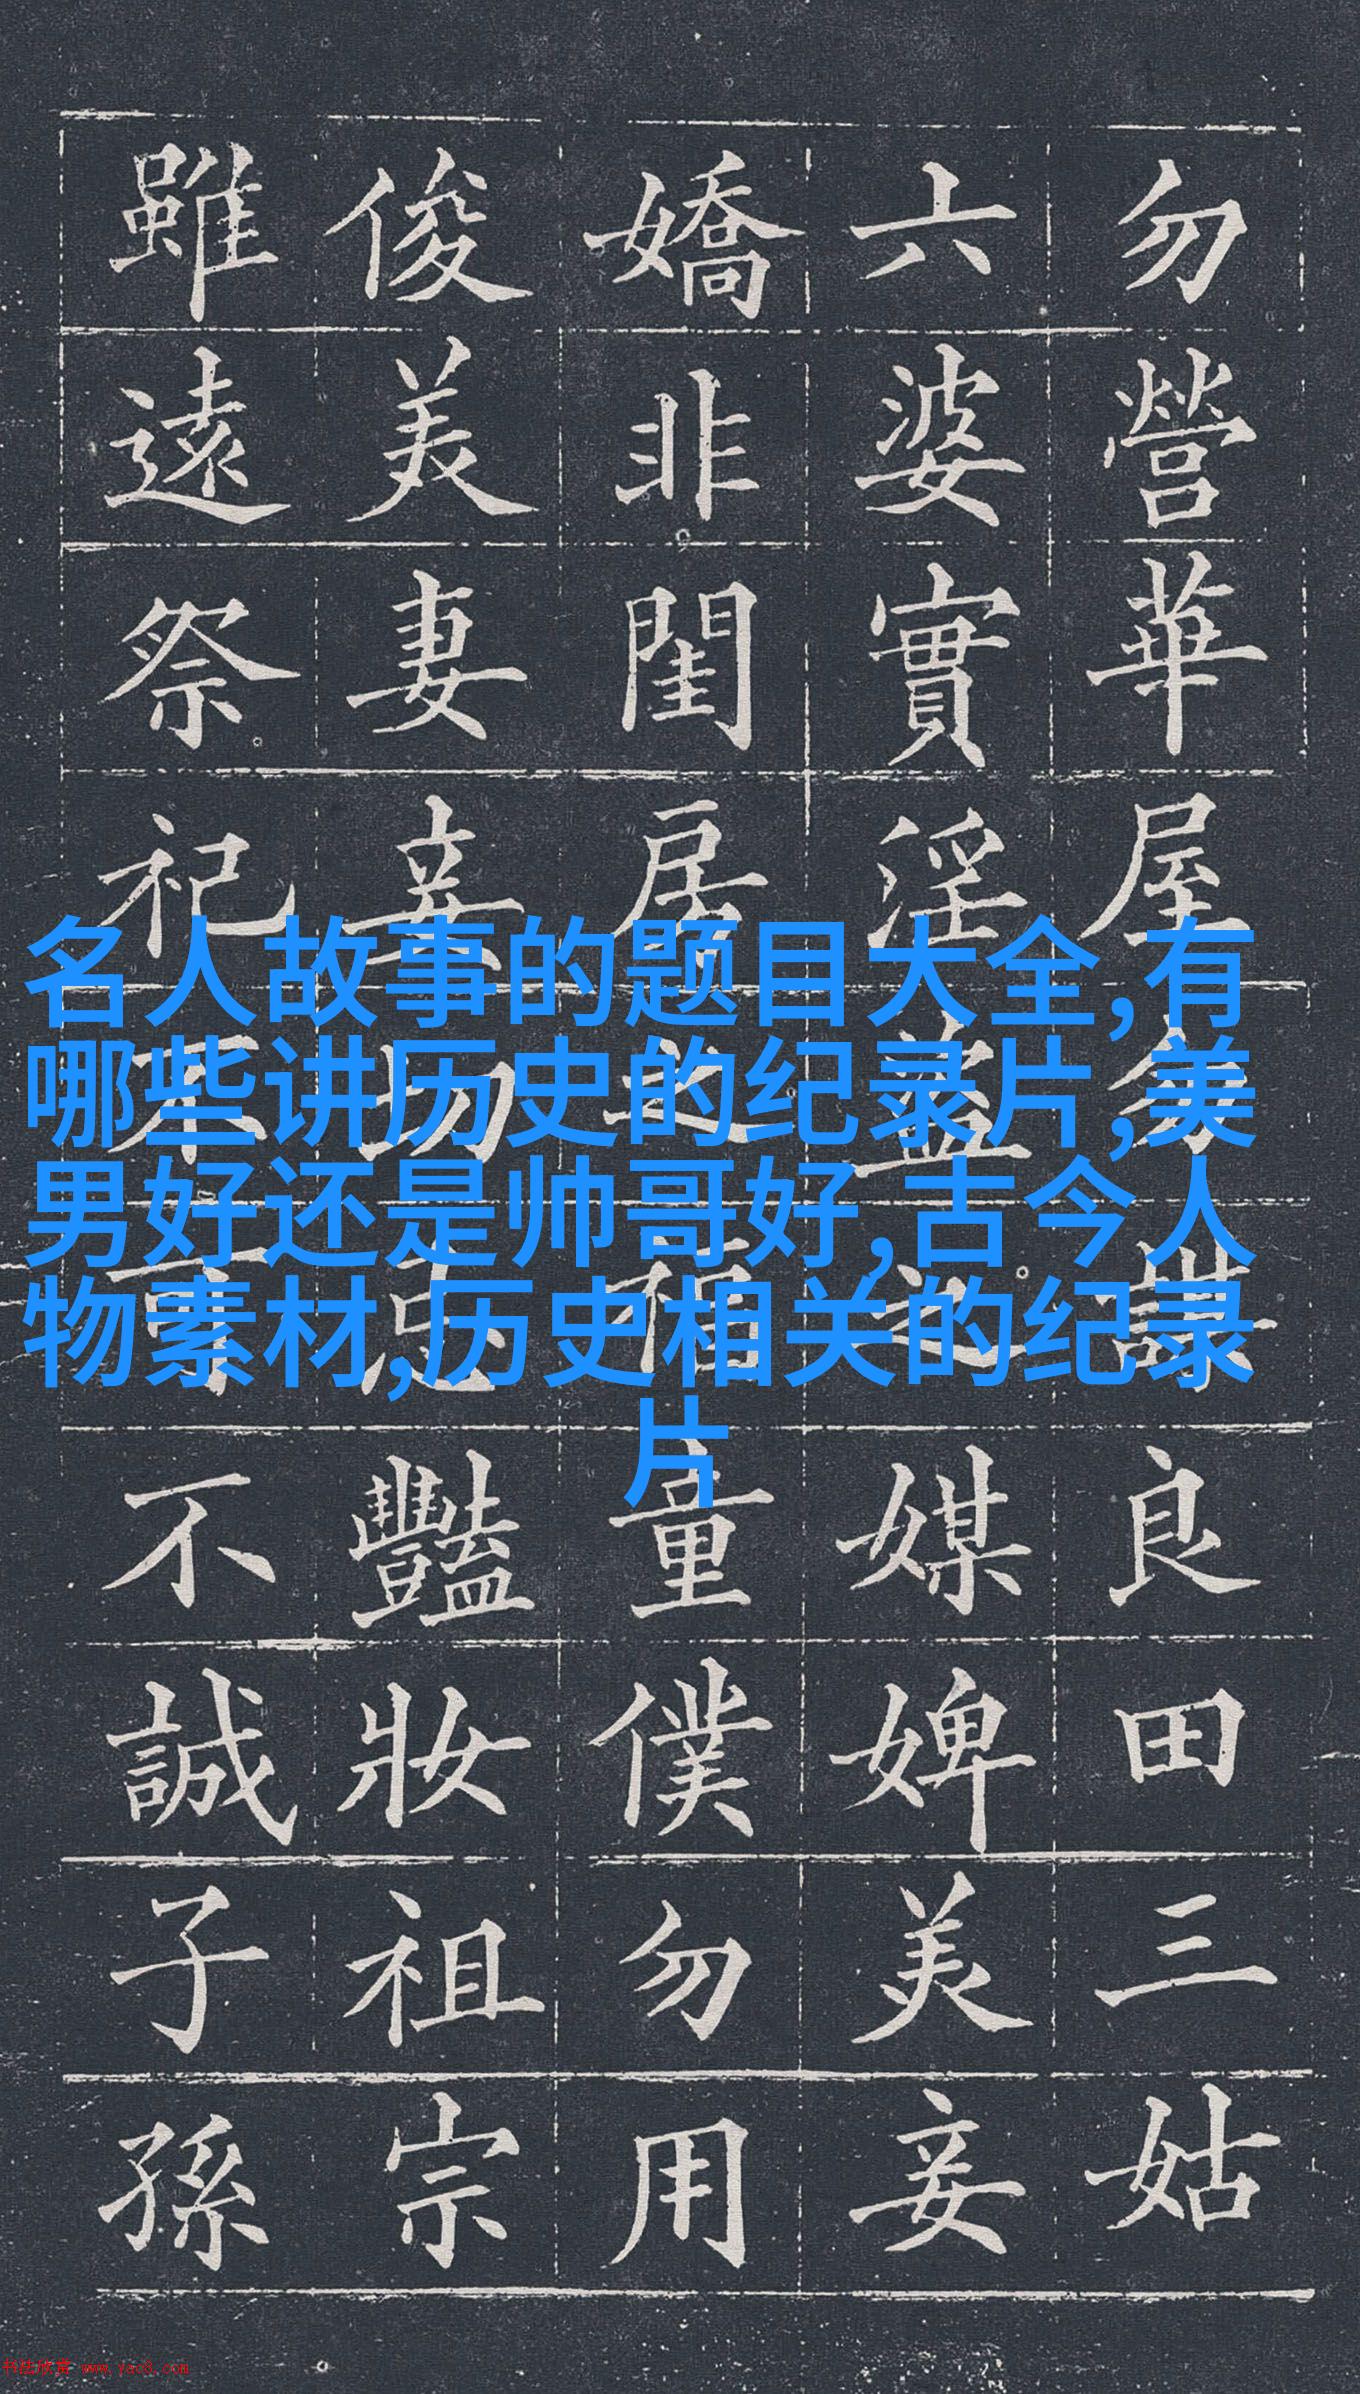 勿營華屋勿謀良田三姑
六婆實淫盜之媒婢美妾
嬌非閨房之福童僕勿用
俊美妻妾切忌豔妝祖宗
雖遠祭祀不可不誠子孫
名人故事的题目大全,有
哪些讲历史的纪录片,美
男好还是帅哥好,古今人
物素材,历史相关的纪录
片
书法欣赏 www.yac8.com